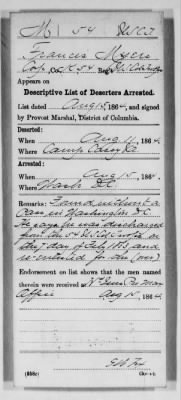 M 54 U S C T
Francis Myers
Co. 54 Reg't
Appears on
Descriptive List of Deserters Arrested.
List dated Aug 15, 1864, and signed
by Provost Marshal, District of Columbia.
Deserted:
When Aug 11, 1864
Where Camp Casey Va
Arrested:
When Aug 15, 1864
Where Wash D.C.
Remarks: Found without a
Pass in Washington D.C.
He says he was discharged
from the 54
the 7 day of July 1863 and
re-enlisted for (over)
Endorsement on list shows that the men named
therein were received at Pro Mar
Office Aug 15, 1864
(656c) Clerk.